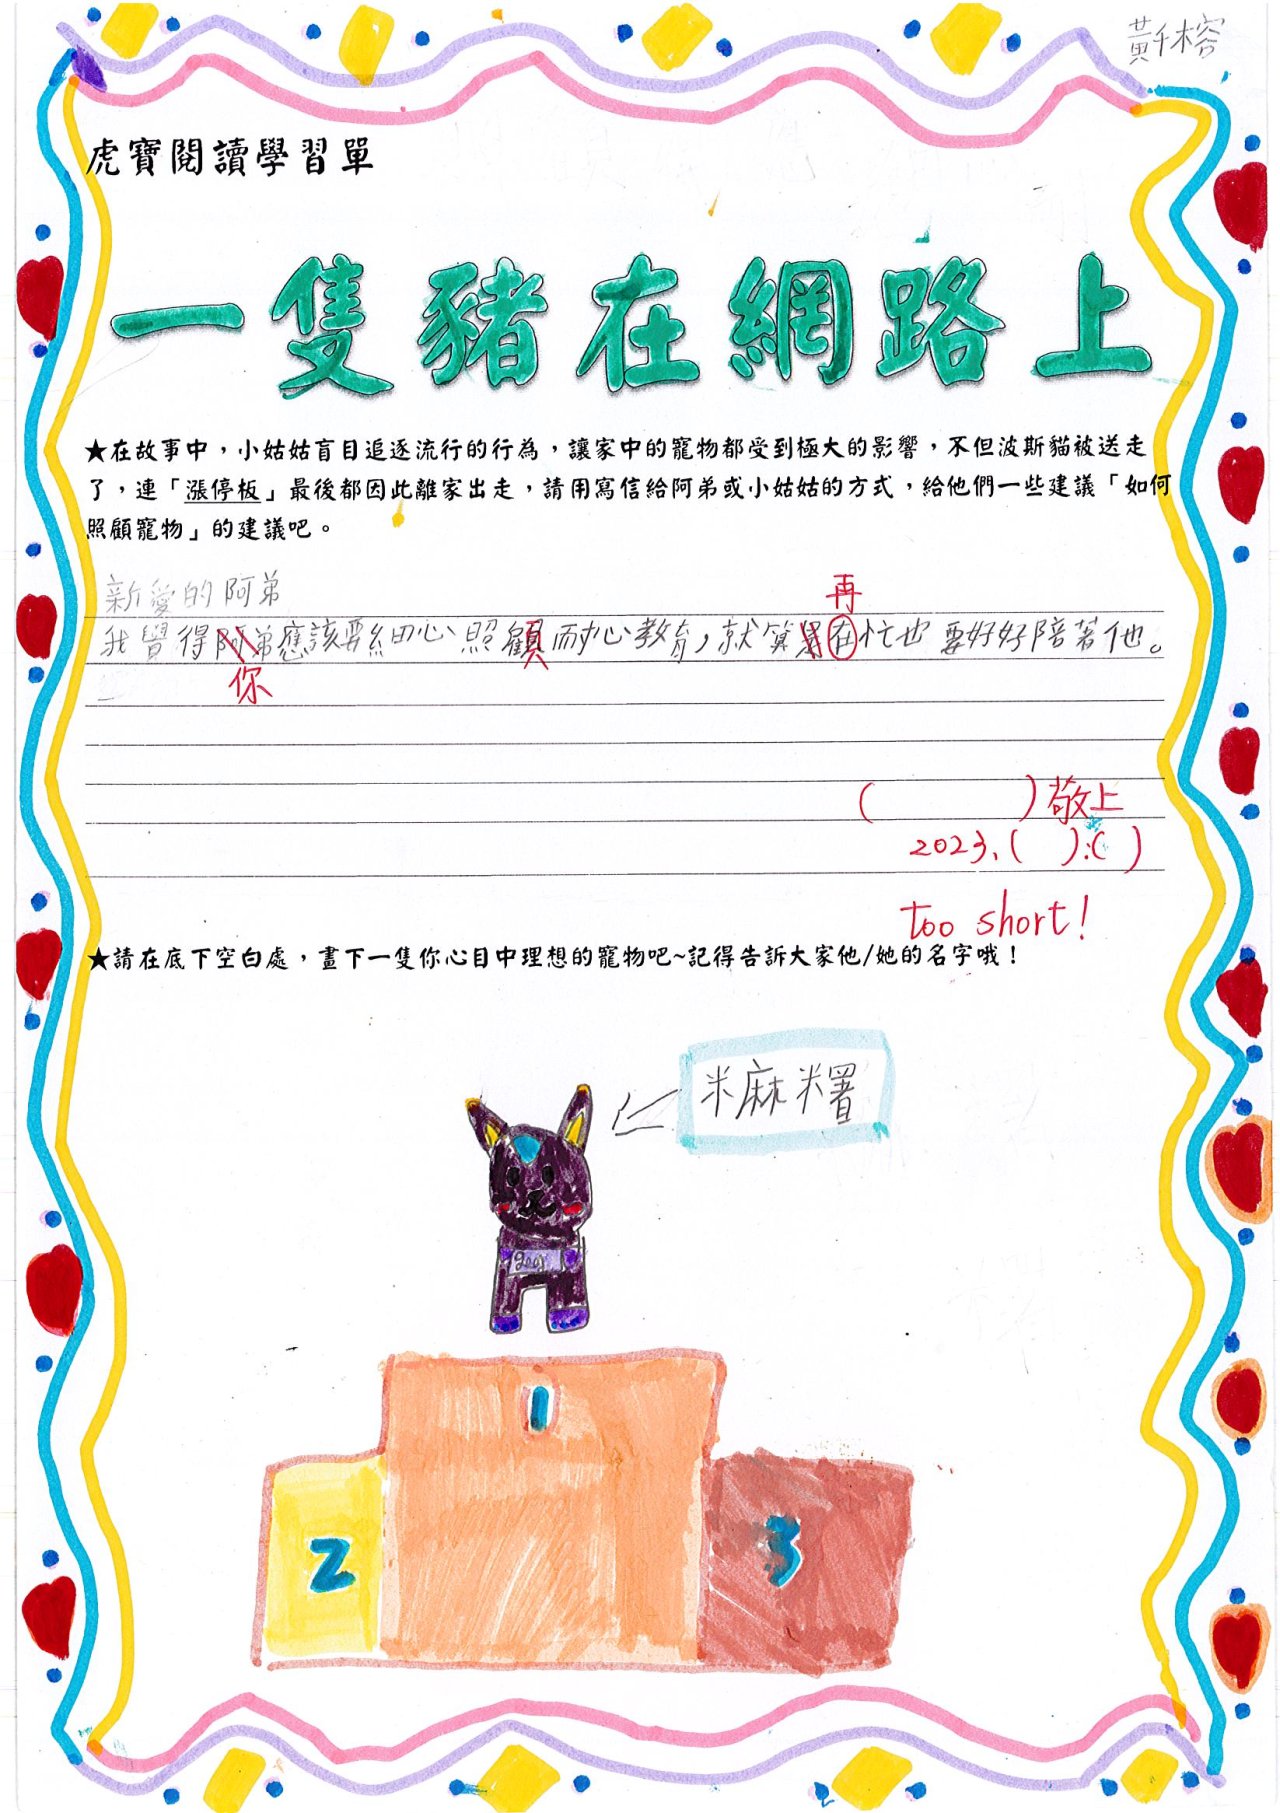 黃千榕
虎寶閱讀學習單
一隻豬在網路上
★在故事中，小姑姑盲目追逐流行的行為，讓家中的寵物都受到極大的影響，不但波斯貓被送走
了，連「漲停板」最後都因此離家出走，請用寫信給阿弟或小姑姑的方式，給他們一些建議「如何
照顧寵物」的建議吧。
新愛的阿弟
再
我覺得阿弟應該要細心照顧耐心教育，就算在忙也要好好陪著他。
你
( )敬上
2023.( ).( )
too short!
★請在底下空白處，畫下一隻你心目中理想的寵物吧~記得告訴大家他/她的名字哦！
麻糬
1
2
3